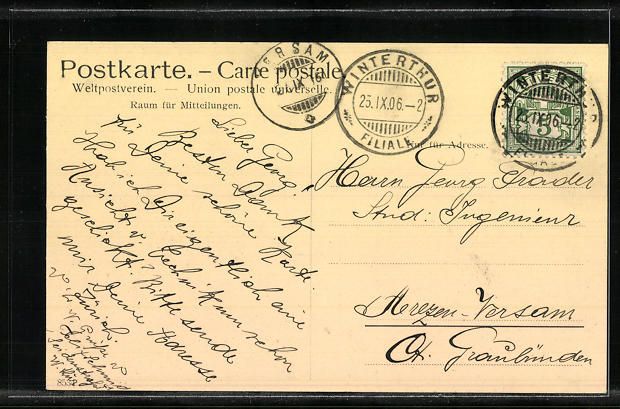 Postkarte. – Carte postale.
Weltpostverein. — Union postale universelle.
Raum für Mitteilungen.
Nur für Adresse.
VERSAM
IX.06
WINTERTHUR
25.IX.06.–2
FILIALE
WINTERTHUR
25.IX.06.
5
Lieber Georg.
Besten Dank
für Deine schöne Karte.
Hab ich Dir eigentlich eine
Ansicht v. Techniкum schon
geschickt? Bitte sende
mir Deine Adresse
v. Zürich.
Herrn Georg Prader
Stud: Ingenieur
Versam
Ct. Graubünden